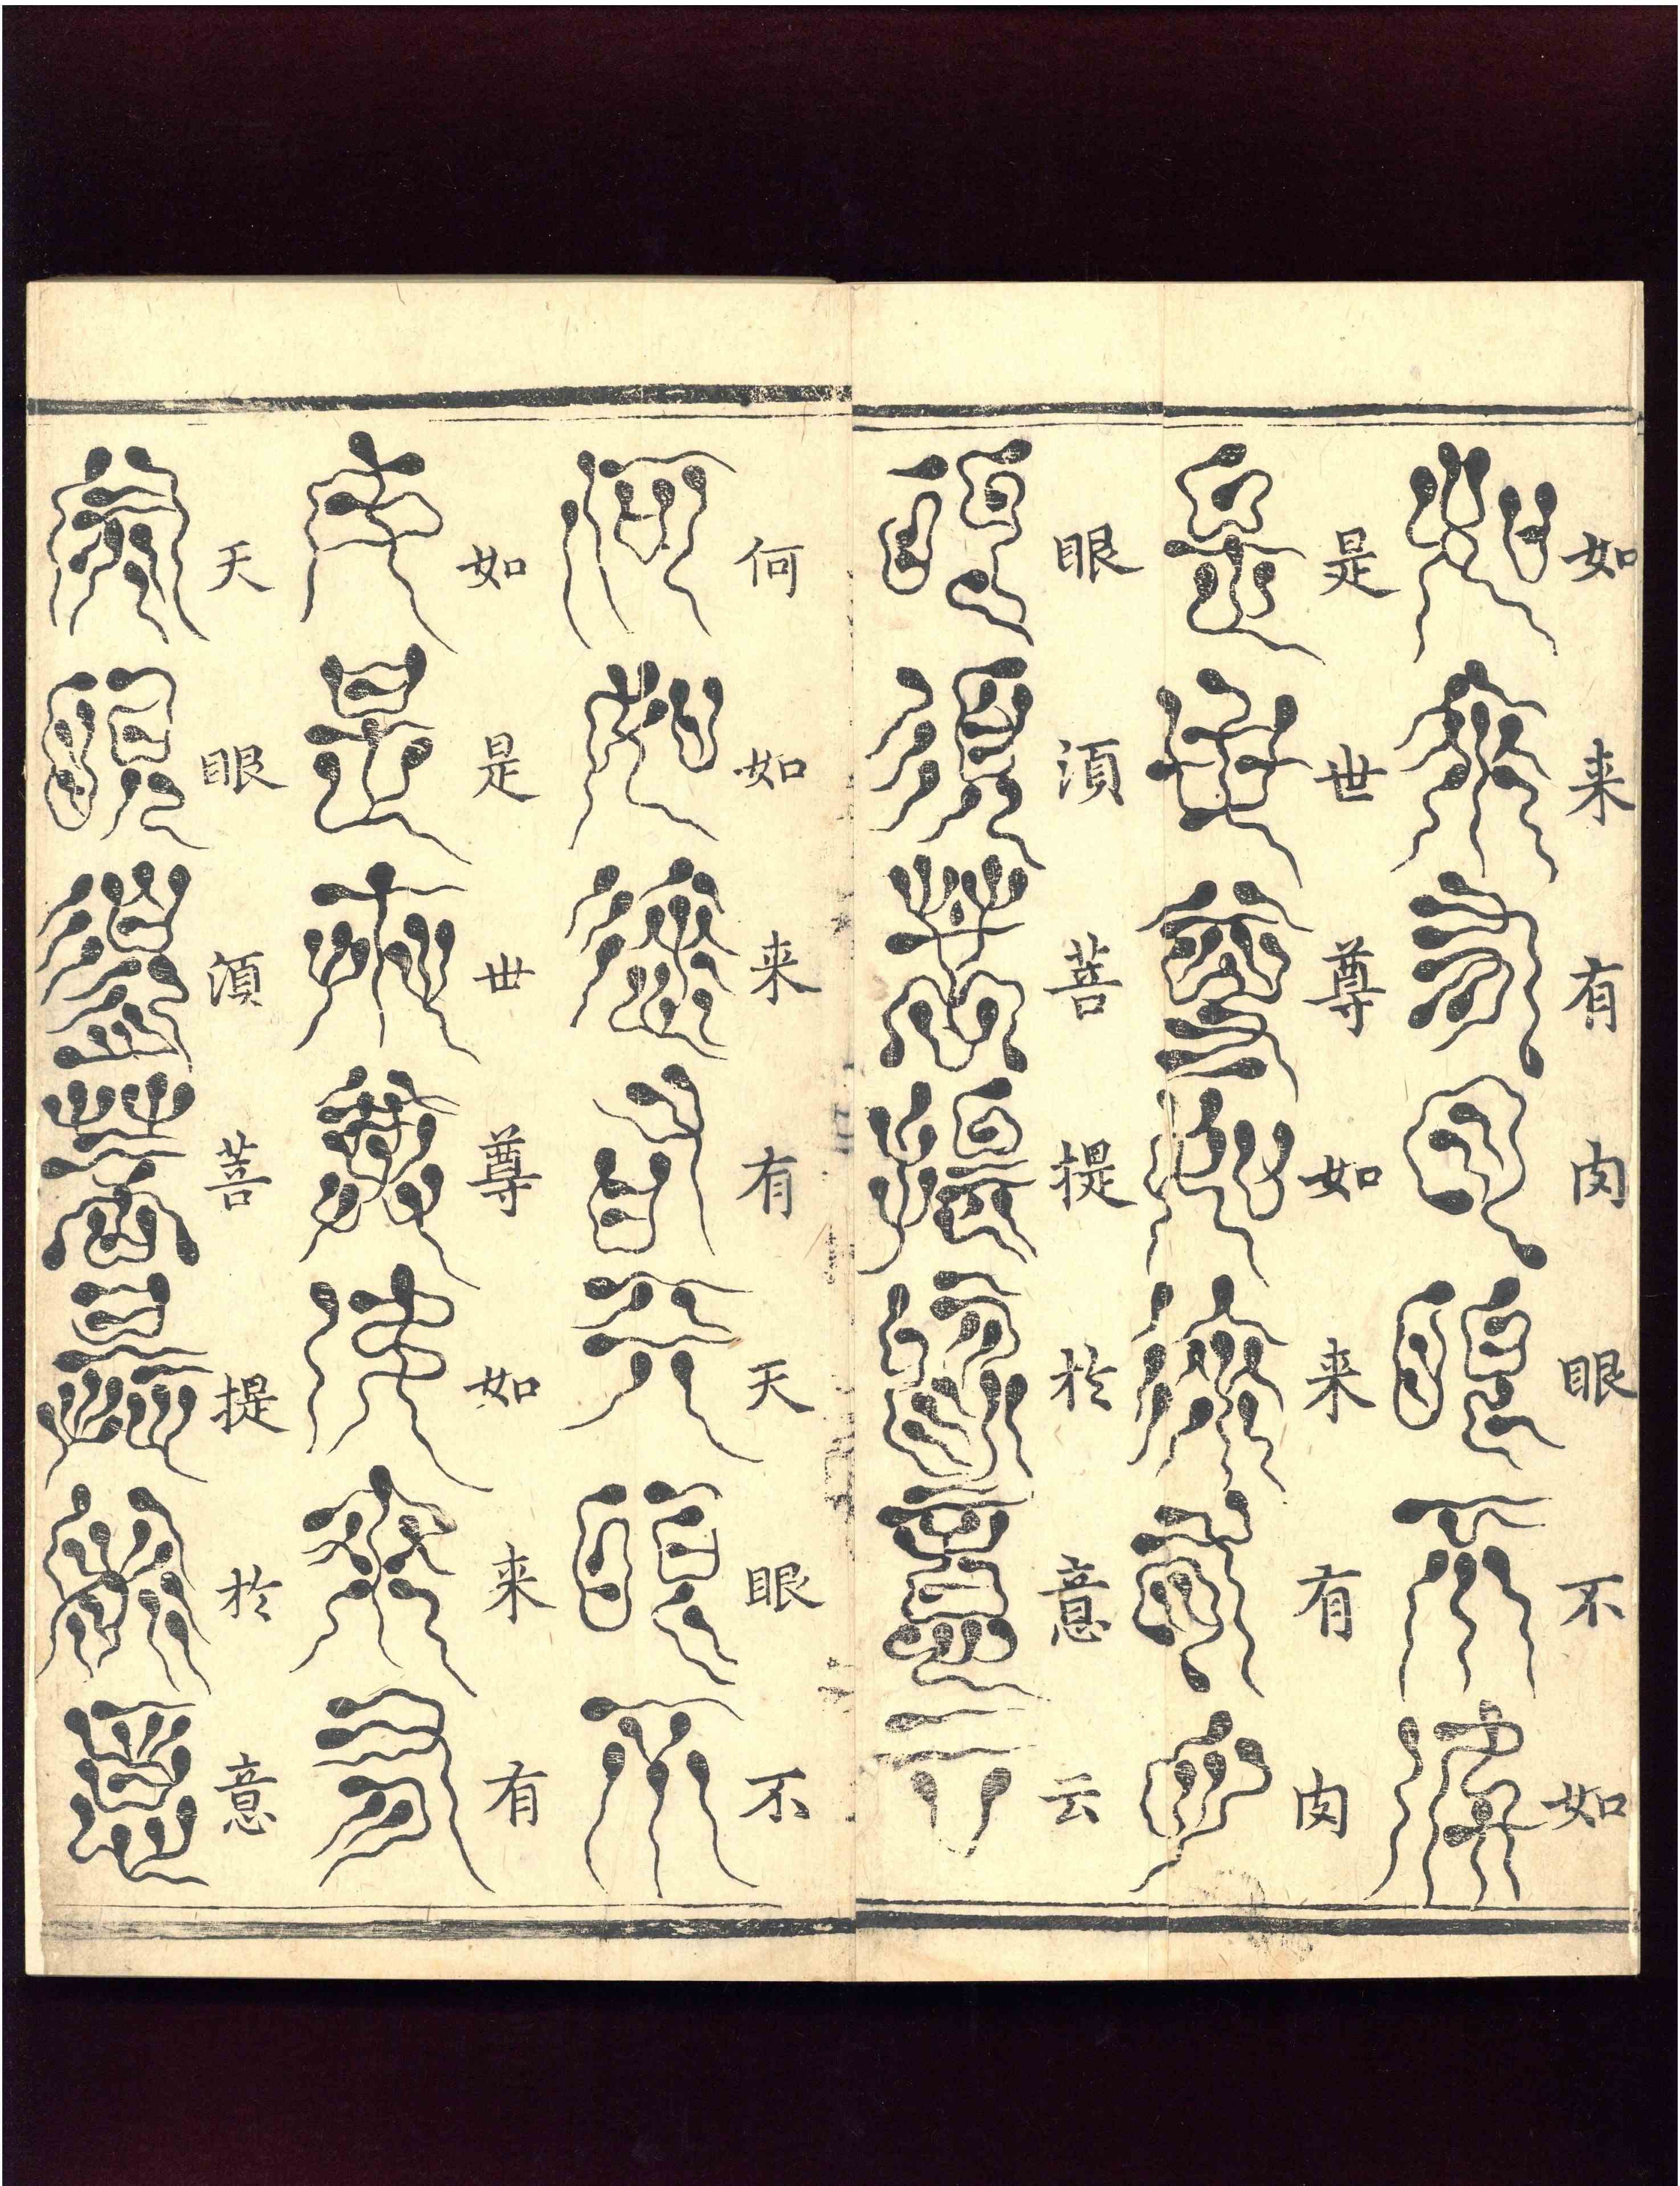 如来有肉眼不如
是世尊如来有肉
眼湏菩提於意云
何如来有天眼不
如是世尊如来有
天眼湏菩提於意